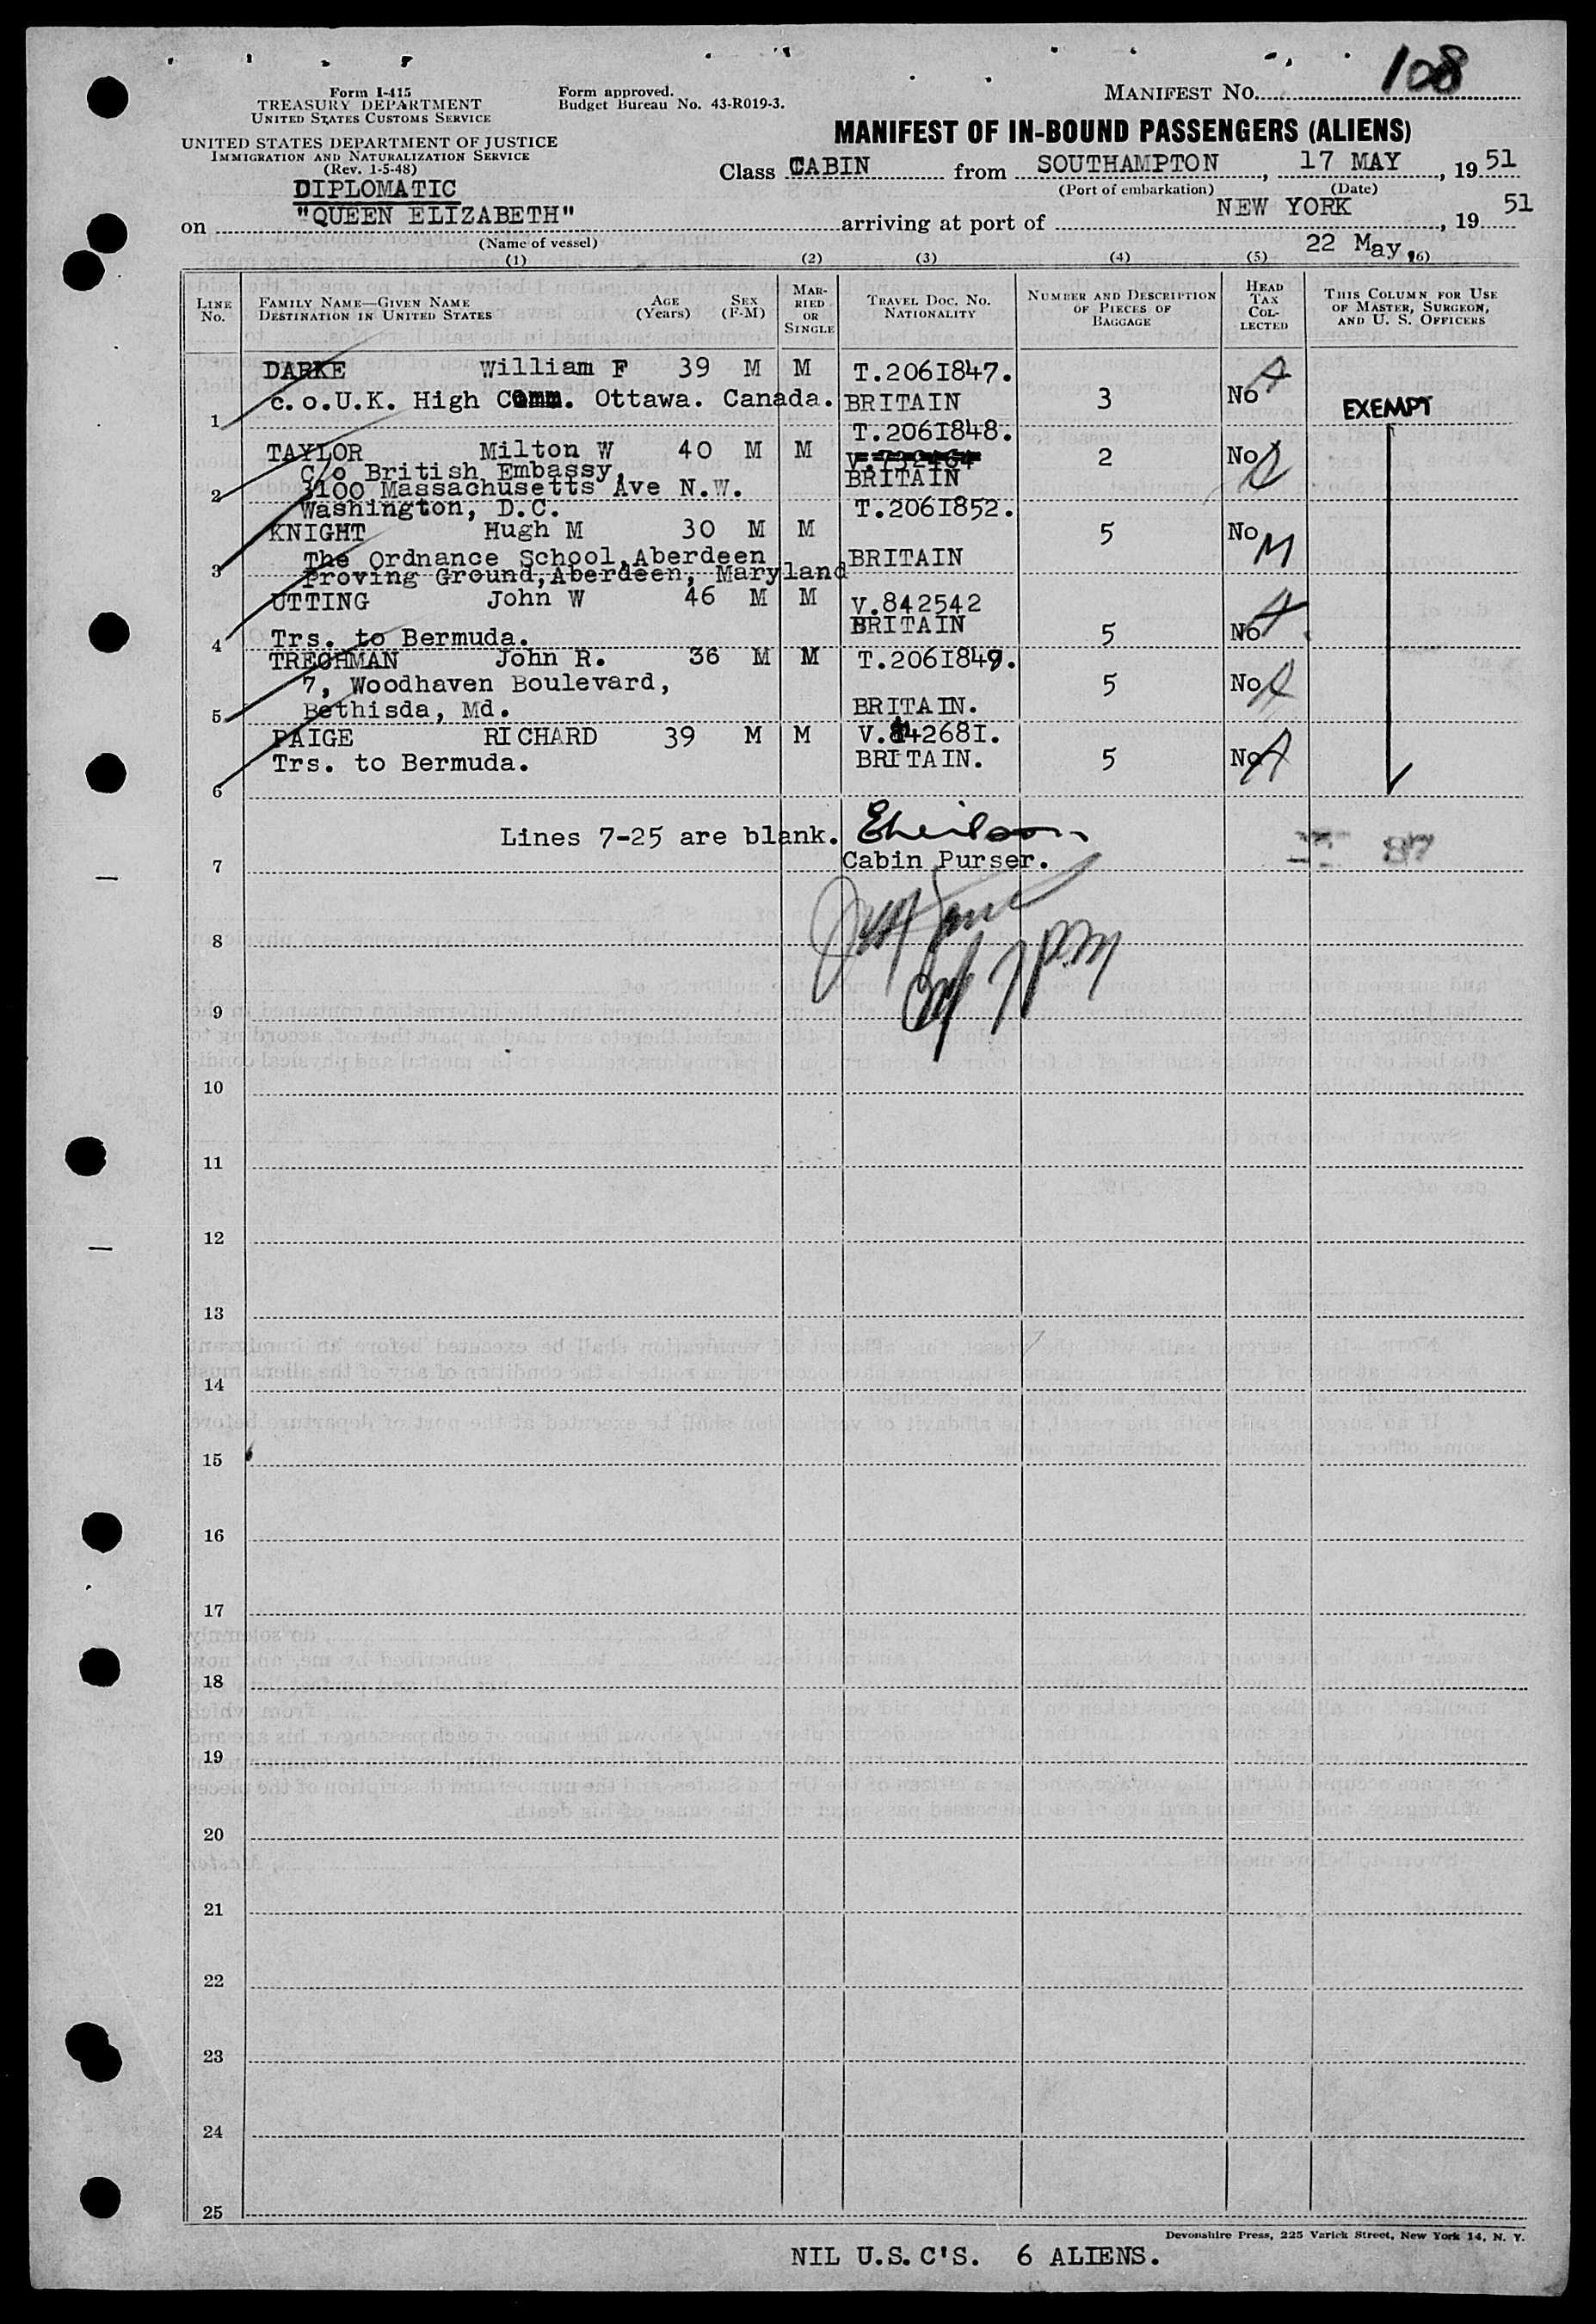 108
Form I-415
TREASURY DEPARTMENT
UNITED STATES CUSTOMS SERVICE
Form approved.
Budget Bureau No. 43-R019-3.
MANIFEST NO.
UNITED STATES DEPARTMENT OF JUSTICE
IMMIGRATION AND NATURALIZATION SERVICE
(Rev. 1-5-48)
MANIFEST OF IN-BOUND PASSENGERS (ALIENS)
DIPLOMATIC
Class CABIN from SOUTHAMPTON, 17 MAY, 19 51
(Port of embarkation) (Date)
on "QUEEN ELIZABETH" arriving at port of NEW YORK, 19 51
(Name of vessel) 22 May,
(1) (2) (3) (4) (5) (6)
LINE NO. FAMILY NAME—GIVEN NAME DESTINATION IN UNITED STATES AGE (Years) SEX (F-M) MARRIED OR SINGLE TRAVEL DOC. NO. NATIONALITY NUMBER AND DESCRIPTION OF PIECES OF BAGGAGE HEAD TAX COLLECTED THIS COLUMN FOR USE OF MASTER, SURGEON, AND U. S. OFFICERS
DARKE William F 39 M M T.2061847.
1 c.o.U.K. High Comm. Ottawa. Canada. BRITAIN 3 No EXEMPT
T.2061848.
TAYLOR Milton W 40 M M V.732464 2 No
c/o British Embassy, BRITAIN
2 3100 Massachusetts Ave N.W.
Washington, D.C. T.2061852.
KNIGHT Hugh M 30 M M 5 No
The Ordnance School, Aberdeen BRITAIN
3 Proving Ground, Aberdeen, Maryland
UTTING John W 46 M M V.842542
BRITAIN
4 Trs. to Bermuda. 5 No
TRECHMAN John R. 36 M M T.2061849.
7, Woodhaven Boulevard, 5 No
5 Bethisda, Md. BRITAIN.
PAIGE RICHARD 39 M M V.842681.
Trs. to Bermuda. BRITAIN. 5 No
6
Lines 7-25 are blank.
7 Cabin Purser.
8
9
10
11
12
13
14
15
16
17
18
19
20
21
22
23
24
25
Devonshire Press, 225 Varick Street, New York 14, N. Y.
NIL U.S.C'S. 6 ALIENS.